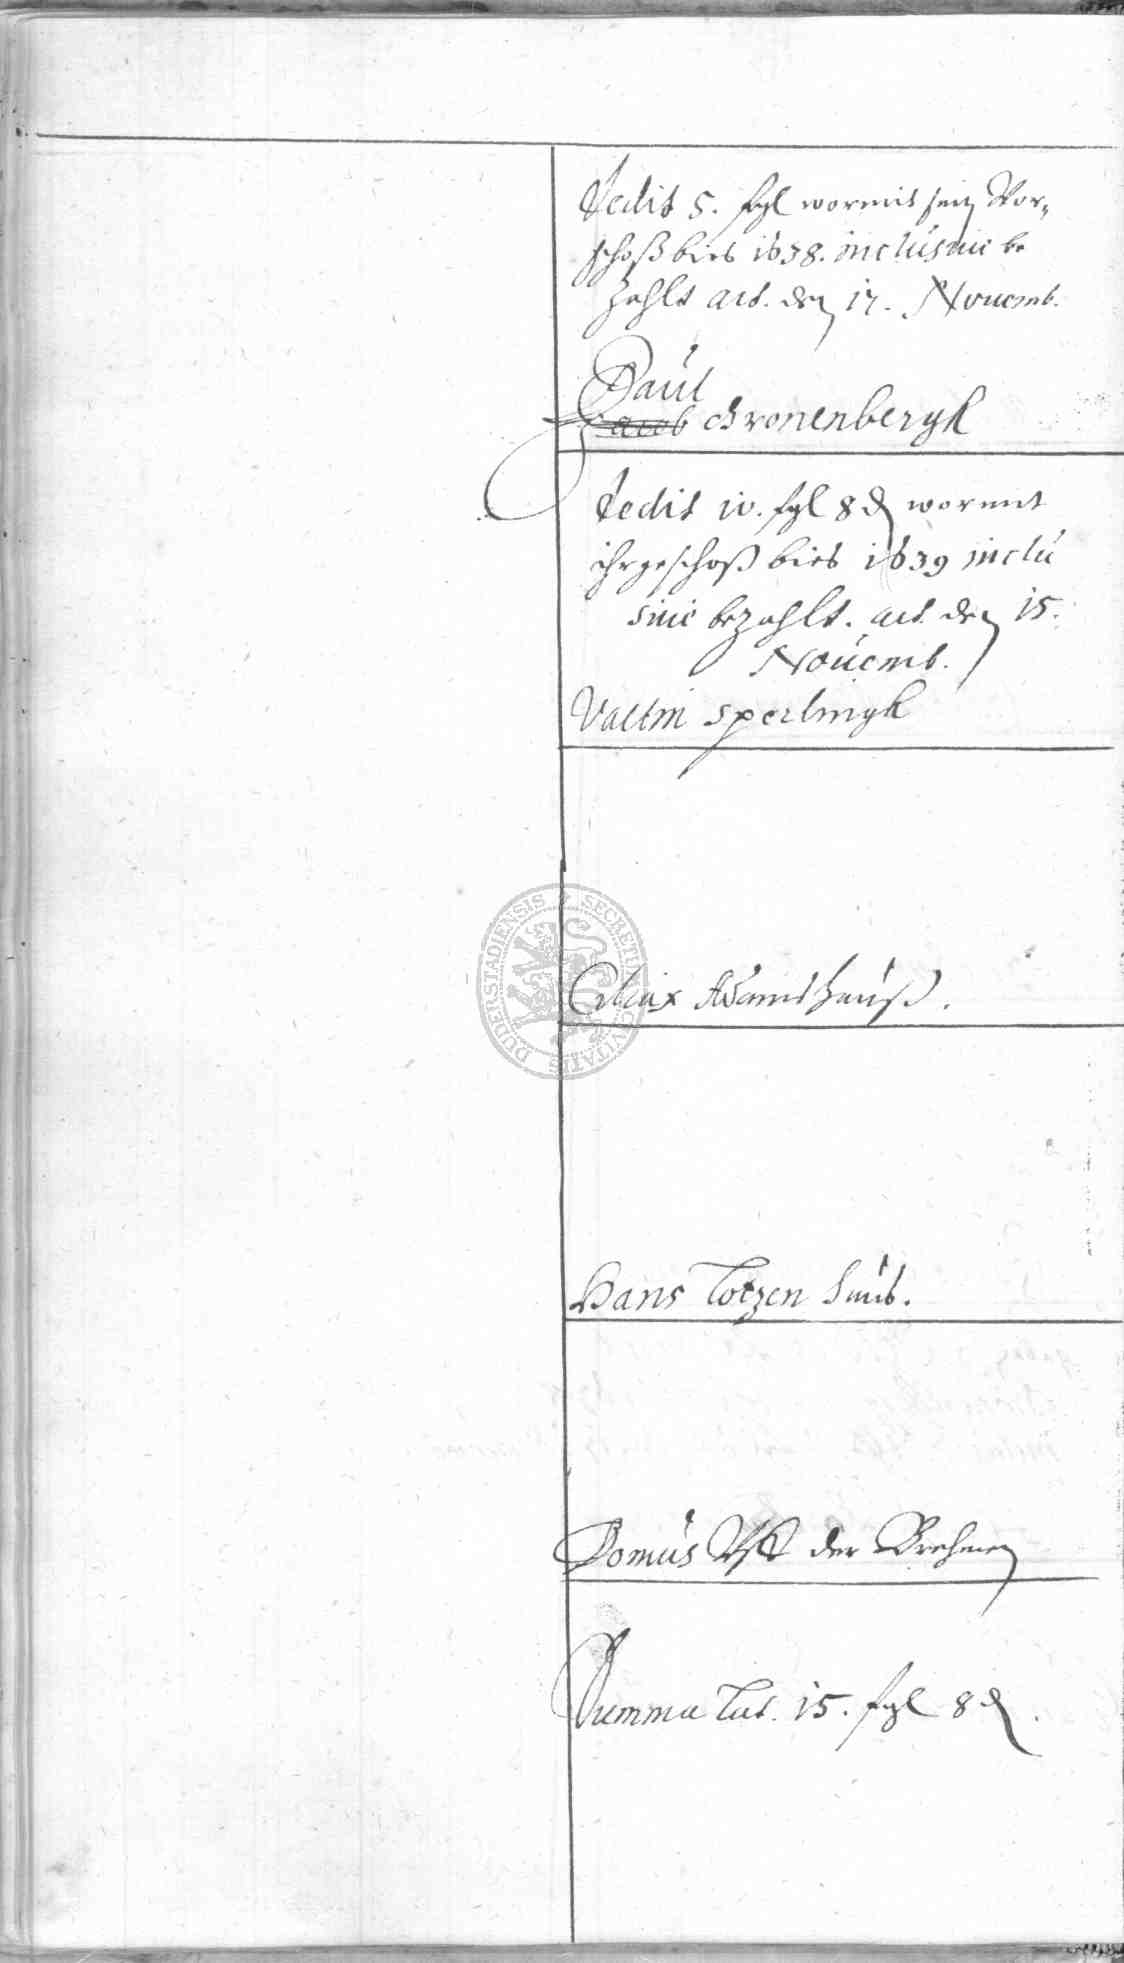 dedit 5. ßgl wormit sein Vor-
schoß bies 1638. inclusiue be
zahlt act. den 17. Nouemb.
Paul
Jacob Gronenbergk
dedit 10. ßgl 8 ₰ wormit
ihr geschoß bies 1639 inclu
siue bezahlt. act. den 15.
Nouemb.
Valtin Sperlingk
DUDERSTADIENSIS SECRETUM CIVITATIS
Adamshauß.
Hans Totzen hauß.
Domus Vff der Brehmen
Summa Lat. 15. ßgl 8 ₰.